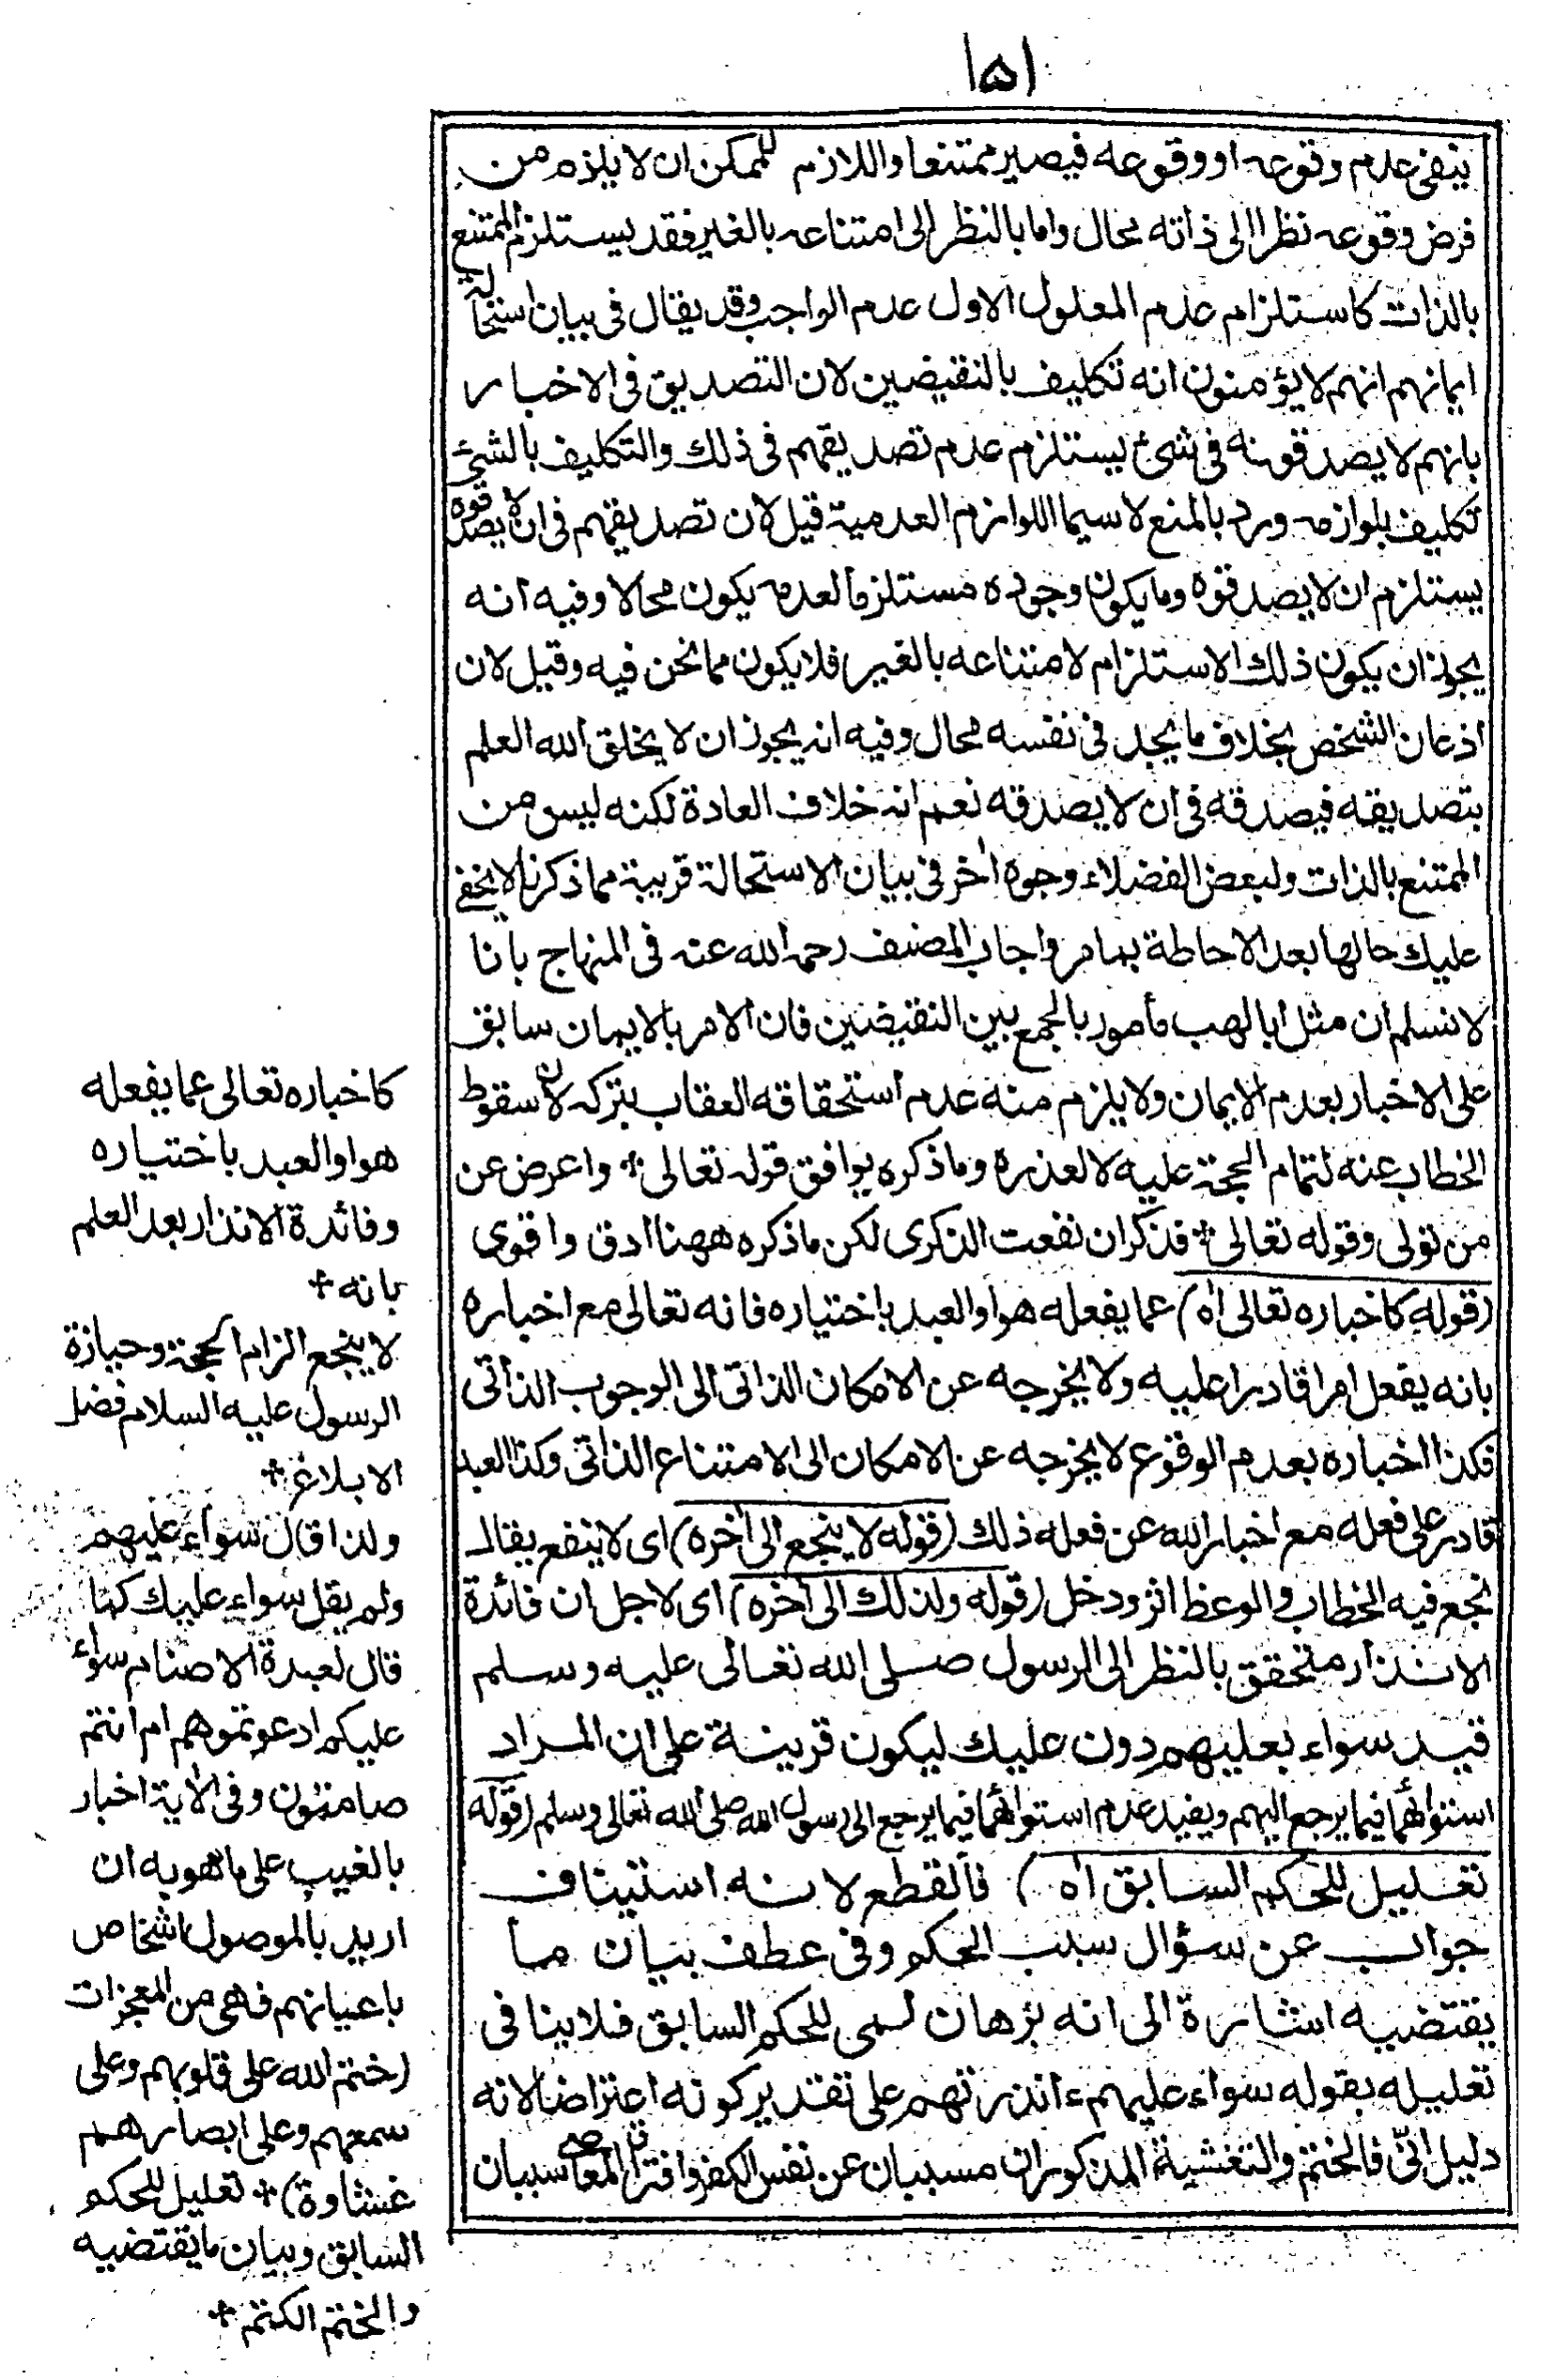 ١٥١
ينفى عدم وقوعه او وقوعه فيصير ممتنعا واللازم للممكن ان لا يلزم من
فرض وقوعه نظرا الى ذاته محال واما بالنظر الى امتناعه بالغير فقد يستلزم الممتنع
بالذات كاستلزام عدم المعلول الاول عدم الواجب وقد يقال فى بيان استحالة
ايمانهم انهم لا يؤمنون انه تكليف بالنقيضين لان التصديق فى الاخبار
بانهم لا يصدقونه فى شئ يستلزم عدم تصديقهم فى ذلك والتكليف بالشئ
تكليف بلوازمه ورد بالمنع لا سيما اللوازم العدمية قيل لان تصديقهم فى ان لا يصدقوه
يستلزم ان لا يصدقوه وما يكون وجوده مستلزما لعدمه يكون محالا وفيه انه
يجوز ان يكون ذلك الاستلزام لامتناعه بالغير فلا يكون مما نحن فيه وقيل لان
اذعان الشخص بخلاف ما يجد فى نفسه محال وفيه انه يجوز ان لا يخلق الله العلم
بتصديقه فيصدقه فى ان لا يصدقه نعم انه خلاف العادة لكنه ليس من
الممتنع بالذات ولبعض الفضلاء وجوه اخر فى بيان الاستحالة قريبة مما ذكرنا لا يخفى
عليك حالها بعد الاحاطة بما مر واجاب المصنف رحمه الله عنه فى المنهاج بانا
لا نسلم ان مثل ابا لهب مأمور بالجمع بين النقيضين فان الامر بالايمان سابق
على الاخبار بعدم الايمان ولا يلزم منه عدم استحقاقه العقاب بتركه لان سقوط
الخطاب عنه لتمام الحجة عليه لا لعذره وما ذكره يوافق قوله تعالى + واعرض عن
من تولى وقوله تعالى + فذكر ان نفعت الذكرى لكن ما ذكره ههنا ادق واقوى
(قوله كاخباره تعالى اه) عما يفعله هو او العبد باختياره فانه تعالى مع اخباره
بانه يفعل امرا قادرا عليه ولا يخرجه عن الامكان الذاتى الى الوجوب الذاتى
فكذا اخباره بعدم الوقوع لا يخرجه عن الامكان الى الامتناع الذاتى وكذا العبد
قادر على فعله مع اخبار الله عن فعله ذلك (قوله لا ينجع الى اخره) اى لا ينفع يقال
نجع فيه الخطاب والوعظ اثر ودخل (قوله ولذلك الى اخره) اى لاجل ان فائدة
الانذار متحقق بالنظر الى الرسول صلى الله تعالى عليه وسلم
قيد سواء بعليهم دون عليك ليكون قرينة على ان المراد
استوائهما فيما يرجع اليهم ويفيد عدم استوائهما فيما يرجع الى رسول الله صلى الله تعالى وسلم (قوله
تعليل للحكم السابق اه) فالقطع لانه استيناف
جواب عن سؤال سبب الحكم وفى عطف بيان ما
يقتضيه اشارة الى انه برهان لمى للحكم السابق فلا ينافى
تعليله بقوله سواء عليهم ءانذرتهم على تقدير كونه اعتراضا لانه
دليل انّى فالختم والتغشية المذكوران مسببان عن نفس الكفر واقتران المعاصى سببان
كاخباره تعالى عما يفعله
هو او العبد باختياره
وفائدة الانذار بعد العلم
بانه +
لا ينجع الزام الحجة وحيازة
الرسول عليه السلام فضل
الابلاغ +
ولذا قال سواء عليهم
ولم يقل سواء عليك كما
قال لعبدة الاصنام سواء
عليكم ادعوتموهم ام انتم
صامتون وفى الاية اخبار
بالغيب على ما هو به ان
اريد بالموصول اشخاص
باعيانهم فهى من المعجزات
(ختم الله على قلوبهم وعلى
سمعهم وعلى ابصارهم
غشاوة) + تعليل للحكم
السابق وبيان ما يقتضيه
والختم الكتم +